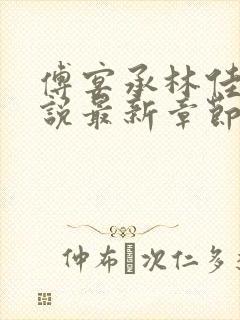 傅宴承林佳
說最新章節
仲布 次仁多